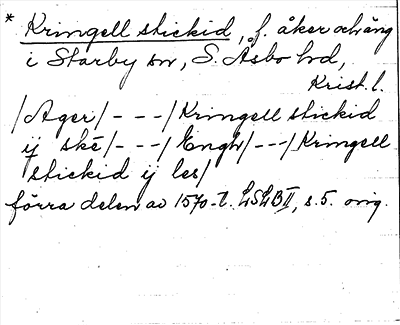 * Kringell stickid, f. åker och äng
i Starby sn, S. Åsbo hd,
Krist. l.
/Ager/ - - - /Kringell stickid
ij ske/ - - - / Engh/ - - - /Kringell
stickid ij les/
förra delen av 1570-t. LSLB II, s. 5. orig.